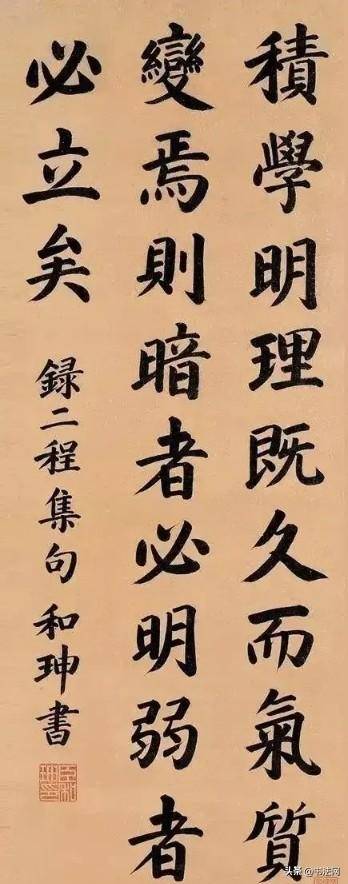 積學明理既久而氣質
變焉則暗者必明弱者
必立矣
録二程集句 和珅書
头条@书法网